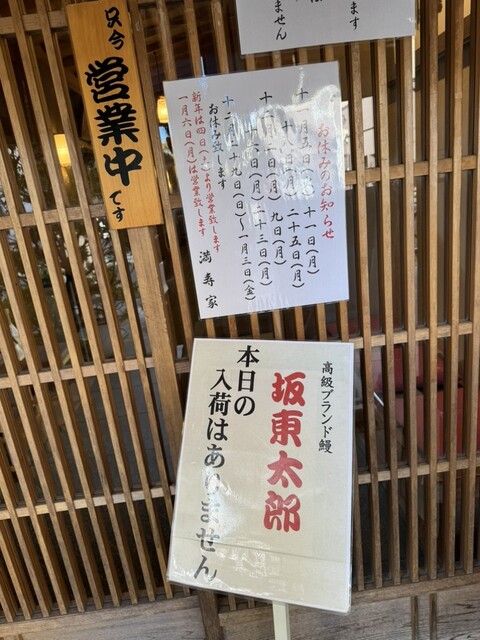 ます
ません
只今
営業中
です
お休みのお知らせ
十一月五日( 十一日(月)
十八日(月) 二十五日(月)
十二月 日(月) 九日(月)
十六日(月) 二十三日(月)
十二月二十九日(日)～一月三日(金)
お休み致します
新年は四日(土)より営業致します
一月六日(月)は営業致します
満寿家
高級ブランド鰻
坂東太郎
本日の
入荷はありません